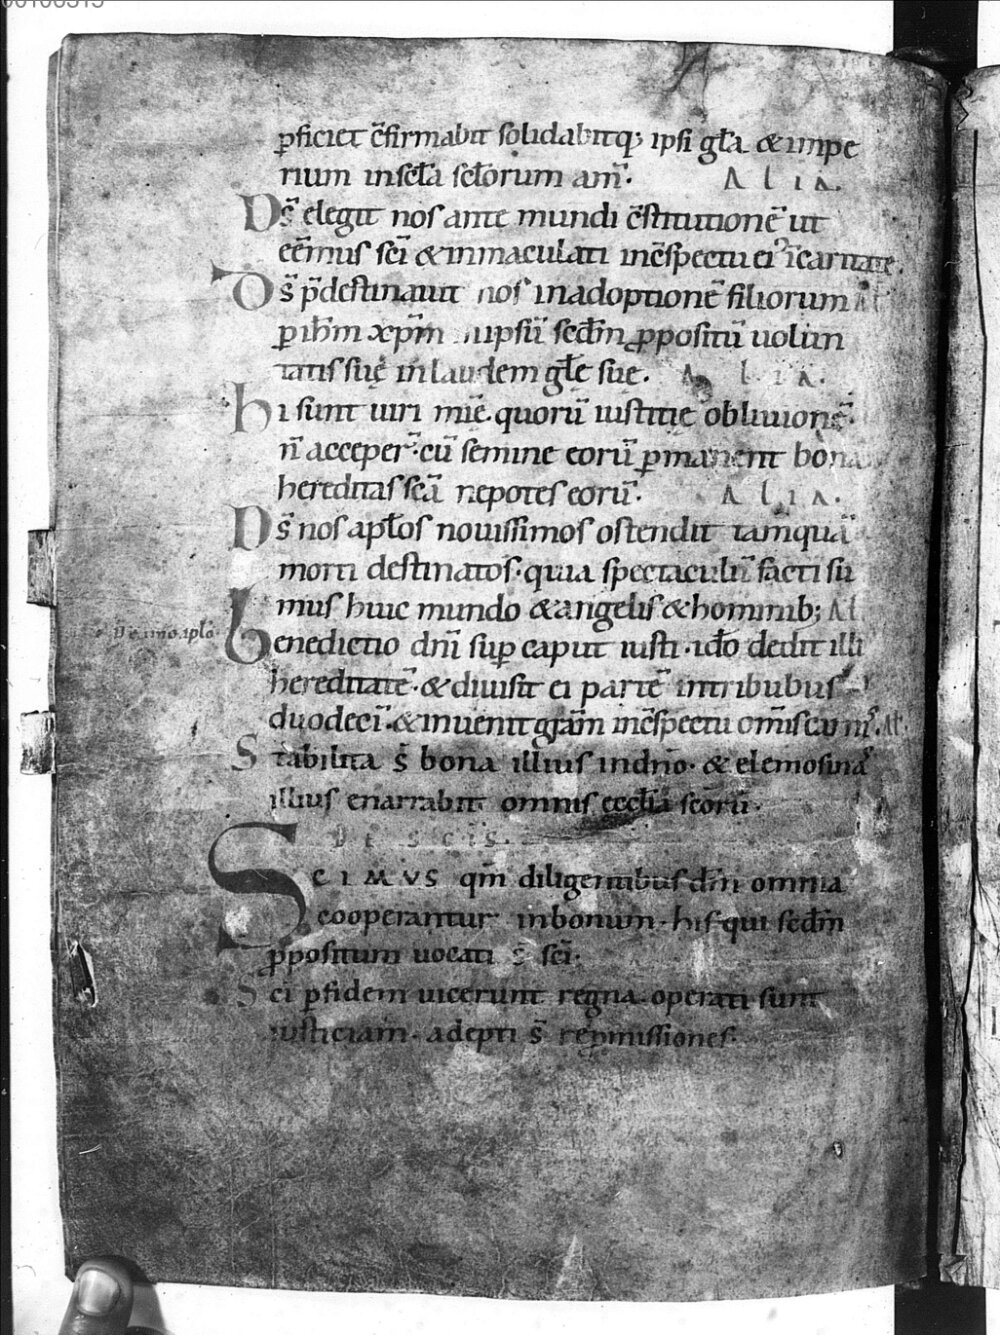 p̄ficiet c̄firmabit solidabitq; ipsi gl̄a & impe
rium in sc̄la sc̄lorum am̄.
ALIA.
Ds̄ elegit nos ante mundi c̄stitutionē ut
eēmus sc̄i & inmaculati in c̄spectu ei᾿ ī caritate.
Ds̄ p̄destinauit nos in adoptionē filiorum Al
p ih̄m xp̄m ipsū sed̄m ꝓpositū uolun
tatis suę in laudem gl̄e sue. ALIA.
hi sunt uiri mīe. quorū iustitie obliuionē
n̄ acceper̄. cū semine eorū ꝑmanent bona
hereditas sc̄a nepotes eorū. ALIA.
Ds̄ nos apl̄os nouissimos ostendit tamquā
morti destinatos. quia spectaculū facti su
mus huic mundo & angelis & hominib; Al
De uno apl̄o.
benedictio dn̄i sup caput iusti. ido dedit illi
hereditatē. & diuisit ei partē in tribubus
duodecī. & inuenit gr̄am in c̄spectu om̄is carnis. Al.
Stabilita s̄ bona illius in dn̄o. & elemosinas
illius enarrabit omnis eccl̄ia sc̄orū.
DE SCIS.
SCIMVS qm̄ diligentibus dm̄ omnia
cooperantur in bonum. his qui sed̄m
ꝓpositum uocati s̄ sc̄i.
Sci p fidem uicerunt regna. operati sunt
iusticiam. adepti s̄ repmissiones.